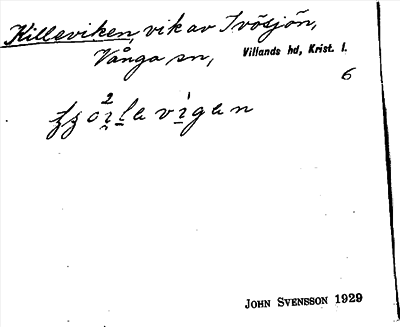 Killeviken, vik av Ivösjön,
Vånga sn, Villands hd, Krist. l.
6
John Svensson 1929